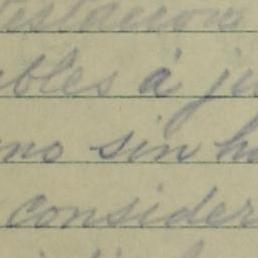 estacion
bles á ju
mo sin ha
consider